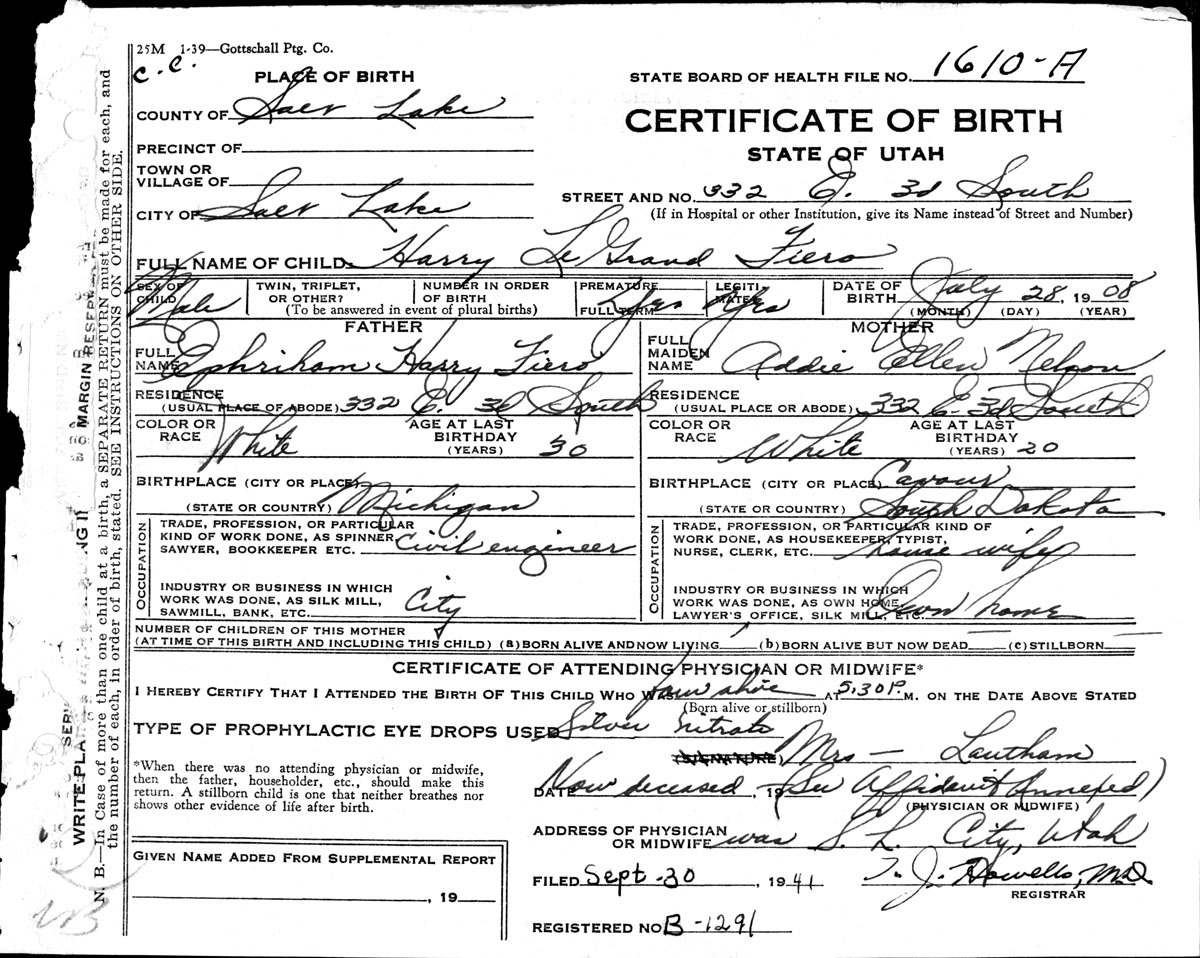 25M 1-39—Gottschall Ptg. Co.
C. C.
PLACE OF BIRTH
COUNTY OF Salt Lake
PRECINCT OF
TOWN OR
VILLAGE OF
CITY OF Salt Lake
STATE BOARD OF HEALTH FILE NO. 1610-A
CERTIFICATE OF BIRTH
STATE OF UTAH
STREET AND NO. 332 E. 3d South
(If in Hospital or other Institution, give its Name instead of Street and Number)
FULL NAME OF CHILD Harry LeGrand Fiero
SEX OF CHILD Male
TWIN, TRIPLET, OR OTHER?
NUMBER IN ORDER OF BIRTH
(To be answered in event of plural births)
PREMATURE
FULL TERM Yes
LEGITIMATE Yes
DATE OF BIRTH July 28, 1908
(MONTH) (DAY) (YEAR)
FATHER
FULL NAME Ephriham Harry Fiero
RESIDENCE
(USUAL PLACE OF ABODE) 332 E. 3d South
COLOR OR RACE White
AGE AT LAST BIRTHDAY (YEARS) 30
BIRTHPLACE (CITY OR PLACE)
(STATE OR COUNTRY) Michigan
OCCUPATION
TRADE, PROFESSION, OR PARTICULAR
KIND OF WORK DONE, AS SPINNER
SAWYER, BOOKKEEPER ETC. Civil engineer
INDUSTRY OR BUSINESS IN WHICH
WORK WAS DONE, AS SILK MILL,
SAWMILL, BANK, ETC. City
MOTHER
FULL MAIDEN NAME Addie Ellen Nelson
RESIDENCE
(USUAL PLACE OR ABODE) 332 E. 3d South
COLOR OR RACE White
AGE AT LAST BIRTHDAY (YEARS) 20
BIRTHPLACE (CITY OR PLACE) Cavour
(STATE OR COUNTRY) South Dakota
OCCUPATION
TRADE, PROFESSION, OR PARTICULAR KIND OF
WORK DONE, AS HOUSEKEEPER, TYPIST,
NURSE, CLERK, ETC. house wife
INDUSTRY OR BUSINESS IN WHICH
WORK WAS DONE, AS OWN HOME,
LAWYER'S OFFICE, SILK MILL, ETC. Own home
NUMBER OF CHILDREN OF THIS MOTHER
(AT TIME OF THIS BIRTH AND INCLUDING THIS CHILD) (a) BORN ALIVE AND NOW LIVING 1 (b) BORN ALIVE BUT NOW DEAD — (c) STILLBORN —
CERTIFICATE OF ATTENDING PHYSICIAN OR MIDWIFE*
I HEREBY CERTIFY THAT I ATTENDED THE BIRTH OF THIS CHILD WHO WAS born alive AT 5:30 P. M. ON THE DATE ABOVE STATED
(Born alive or stillborn)
TYPE OF PROPHYLACTIC EYE DROPS USED Silver nitrate
*When there was no attending physician or midwife,
then the father, householder, etc., should make this
return. A stillborn child is one that neither breathes nor
shows other evidence of life after birth.
(SIGNATURE) Mrs — Lautham
DATE Now deceased, 19 (See Affidavit Annexed)
(PHYSICIAN OR MIDWIFE)
ADDRESS OF PHYSICIAN
OR MIDWIFE was S. L. City, Utah
GIVEN NAME ADDED FROM SUPPLEMENTAL REPORT
, 19
FILED Sept. 30, 1941
T. J. Howells, M.D.
REGISTRAR
REGISTERED NO B-1291
N. B.—In Case of more than one child at a birth, a SEPARATE RETURN must be made for each, and
the number of each, in order of birth, stated. SEE INSTRUCTIONS ON OTHER SIDE.